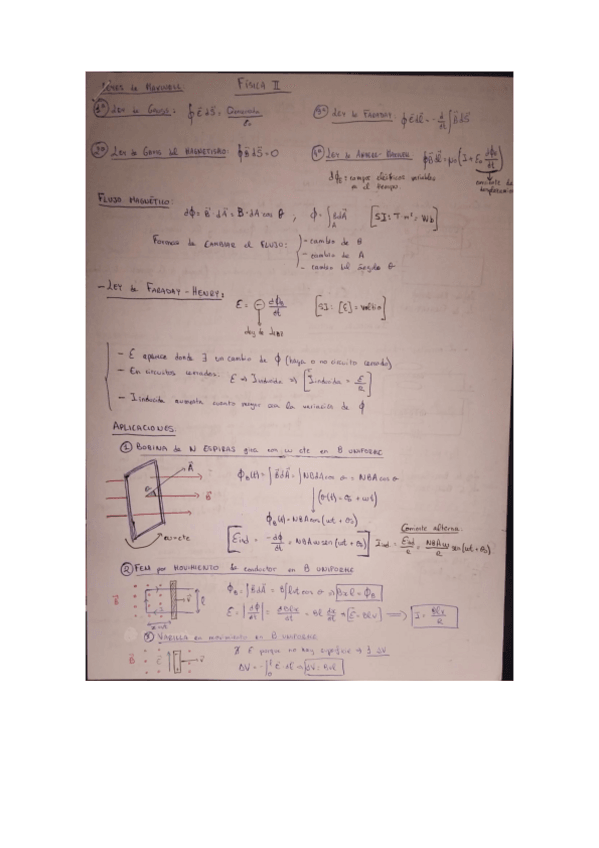 Leyes de Maxwell: FÍSICA II
1ª Ley de Gauss: ∮ E⃗ dS⃗ = Qencerrada / ε₀
3ª Ley de Faraday: ∮ E⃗ dl⃗ = - d/dt ∫ B⃗ dS⃗
2ª Ley de Gauss del magnetismo: ∮ B⃗ dS⃗ = 0
4ª Ley de Ampere-Maxwell: ∮ B⃗ dl⃗ = μ₀ (I + ε₀ dϕE/dt)
campos eléctricos variables en el tiempo.
corriente de desplazamiento
FLUJO MAGNÉTICO:
dϕ = B⃗ · dA⃗ = B · dA cos θ ; ϕ = ∫ B⃗ dA⃗ [SI: T m², Wb]
A
Formas de cambiar el flujo: - cambio de B
- cambio de A
- cambio del ángulo θ
- LEY DE FARADAY-HENRY:
ε = - dϕB/dt [SI: [ε] = voltio]
Ley de Lenz
- ε aparece donde ∃ un cambio de ϕ (haya o no circuito cerrado)
- En circuitos cerrados: ε ⇒ I inducida ⇒ [I inducida = ε/R]
- I inducida aumenta cuanto mayor sea la variación de ϕ
APLICACIONES:
① BOBINA DE N ESPIRAS gira con ω cte en B UNIFORME
A⃗
θ
B⃗
ω = cte
ϕB(t) = ∫ B⃗ dA⃗ = ∫ NBdA cos θ = NBA cos θ
(θ(t) = θ₀ + ωt)
ϕB(t) = NBA cos (ωt + θ₀)
Corriente alterna:
[εind = -dϕ/dt = NBAω sen (ωt + θ₀)] Iind = εind/R = NBAω/R sen (ωt + θ₀)
② FEM por MOVIMIENTO de conductor en B UNIFORME
B⃗
v⃗
l
ϕB = ∫ B⃗ dA⃗ = B∫ ldx cos 0 ⇒ Bxl = ϕB
ε = |dϕ/dt| = dBlx/dt = Bl dx/dt ⇒ [ε = Blv] ⟹ I = Blv/R
③ VARILLA en movimiento en B UNIFORME
B⃗
v⃗
∄ ε porque no hay superficie ⇒ ∃ ΔV
ΔV = -∫₀ˡ E⃗ · dl ⇒ ΔV = Bvl